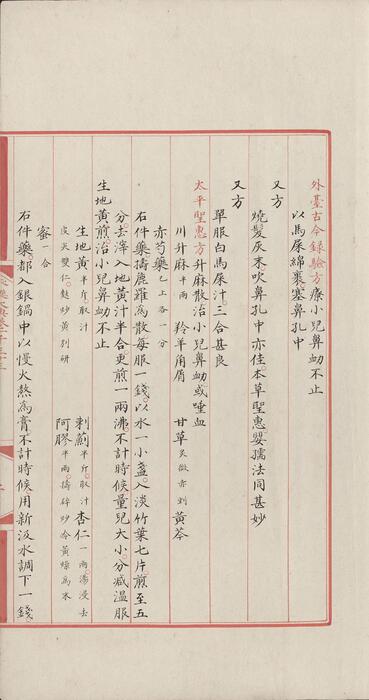 外臺古今錄驗方療小兒鼻衂不止
以馬屎綿裹塞鼻孔中
又方
燒髮灰末吹鼻孔中亦佳本草聖惠嬰孺法同甚妙
又方
單服白馬屎汁三合甚良
太平聖惠方升麻散治小兒鼻衂或唾血
川升麻半兩 羚羊角屑 甘草炙微赤剉 黃芩
赤芍藥已上各一分
右件藥擣麄羅為散每服一錢以水一小盞入淡竹葉七片煎至五
分去滓入地黃汁半合更煎一兩沸不計時候量兒大小分減溫服
生地黃煎治小兒鼻衂不止
生地黃半斤取汁 刺薊半斤取汁 杏仁一兩湯浸去
皮尖雙仁麩炒黃別研 阿膠半兩擣碎炒令黃燥為末
蜜一合
右件藥都入銀鍋中以慢火熬為膏不計時候用新汲水調下一錢